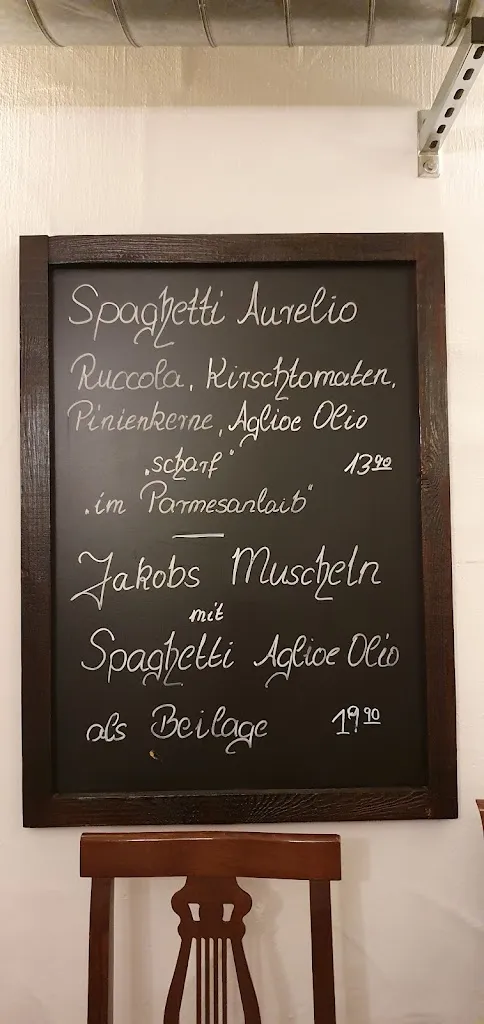 Spaghetti Aurelio
Ruccola, Kirschtomaten,
Pinienkerne, Aglioe Olio
"scharf" 13,90
"im Parmesanlaib"
Jakobs Muscheln
mit
Spaghetti Aglioe Olio
als Beilage 19,90